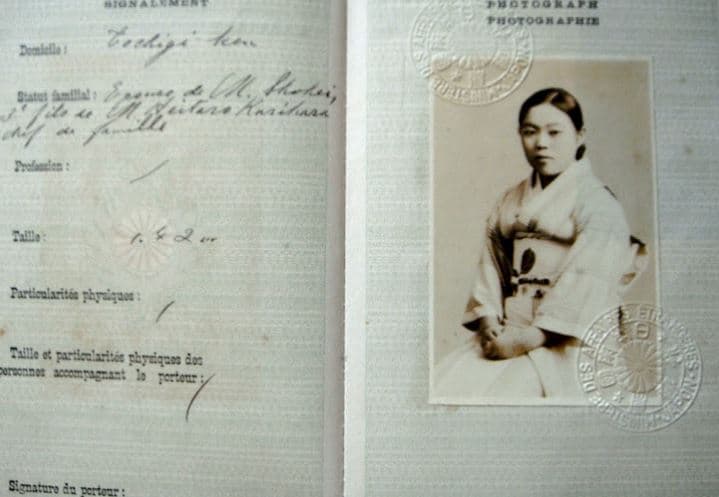 SIGNALEMENT
Domicile : Tochigi Ken
Statut familial : Epouse de M. Shohei,
3e fils de M. Heitaro Kurihara
chef de famille
Profession :
Taille : 1.42 m
Particularités physiques :
Taille et particularités physiques des
personnes accompagnant le porteur :
Signature du porteur :
PHOTOGRAPH
PHOTOGRAPHIE